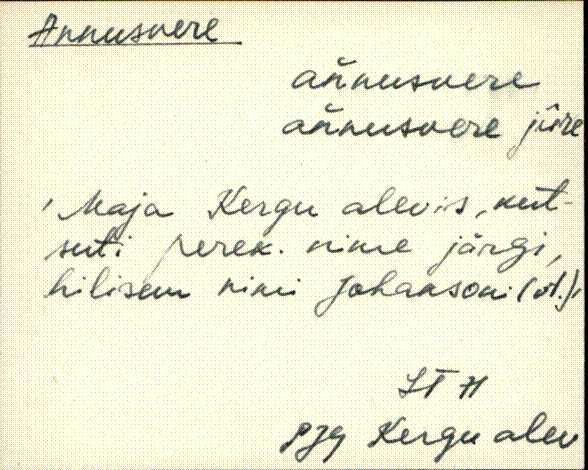 Annusvere
ańnusvere
ańnusvere jūre
Maja Kergu alevis, kut-
suti perek. nime järgi,
hilisem nimi Johansoni (vt.)
Kergu alev